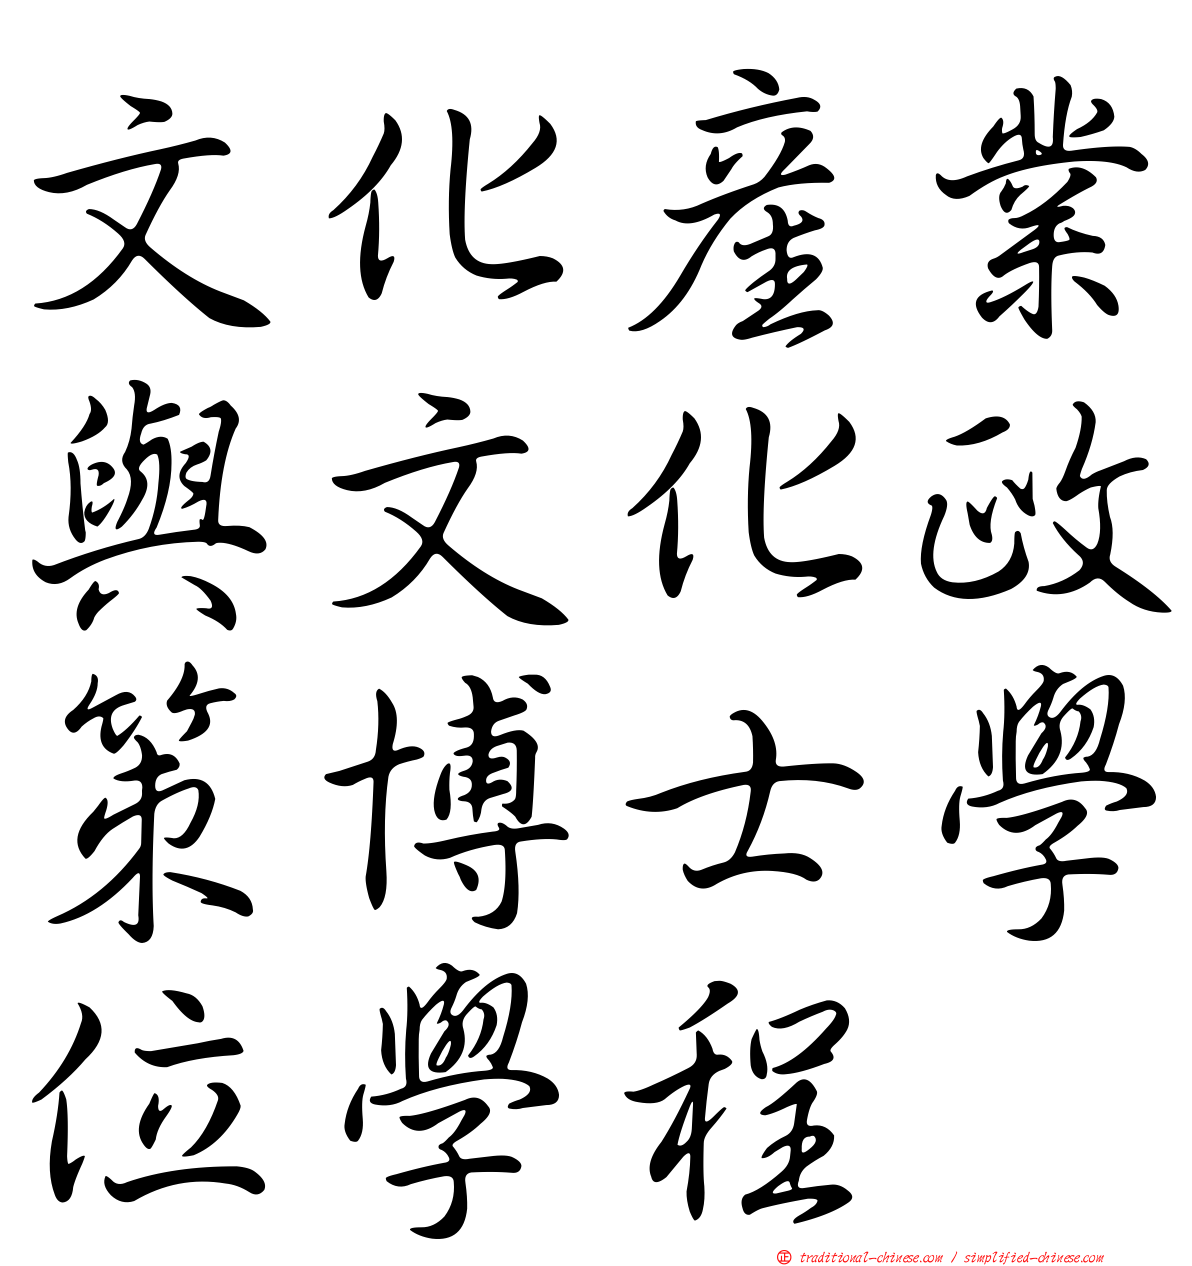 文化產業
與文化政
策博士學
位學程
正 traditional-chinese.com / simplified-chinese.com